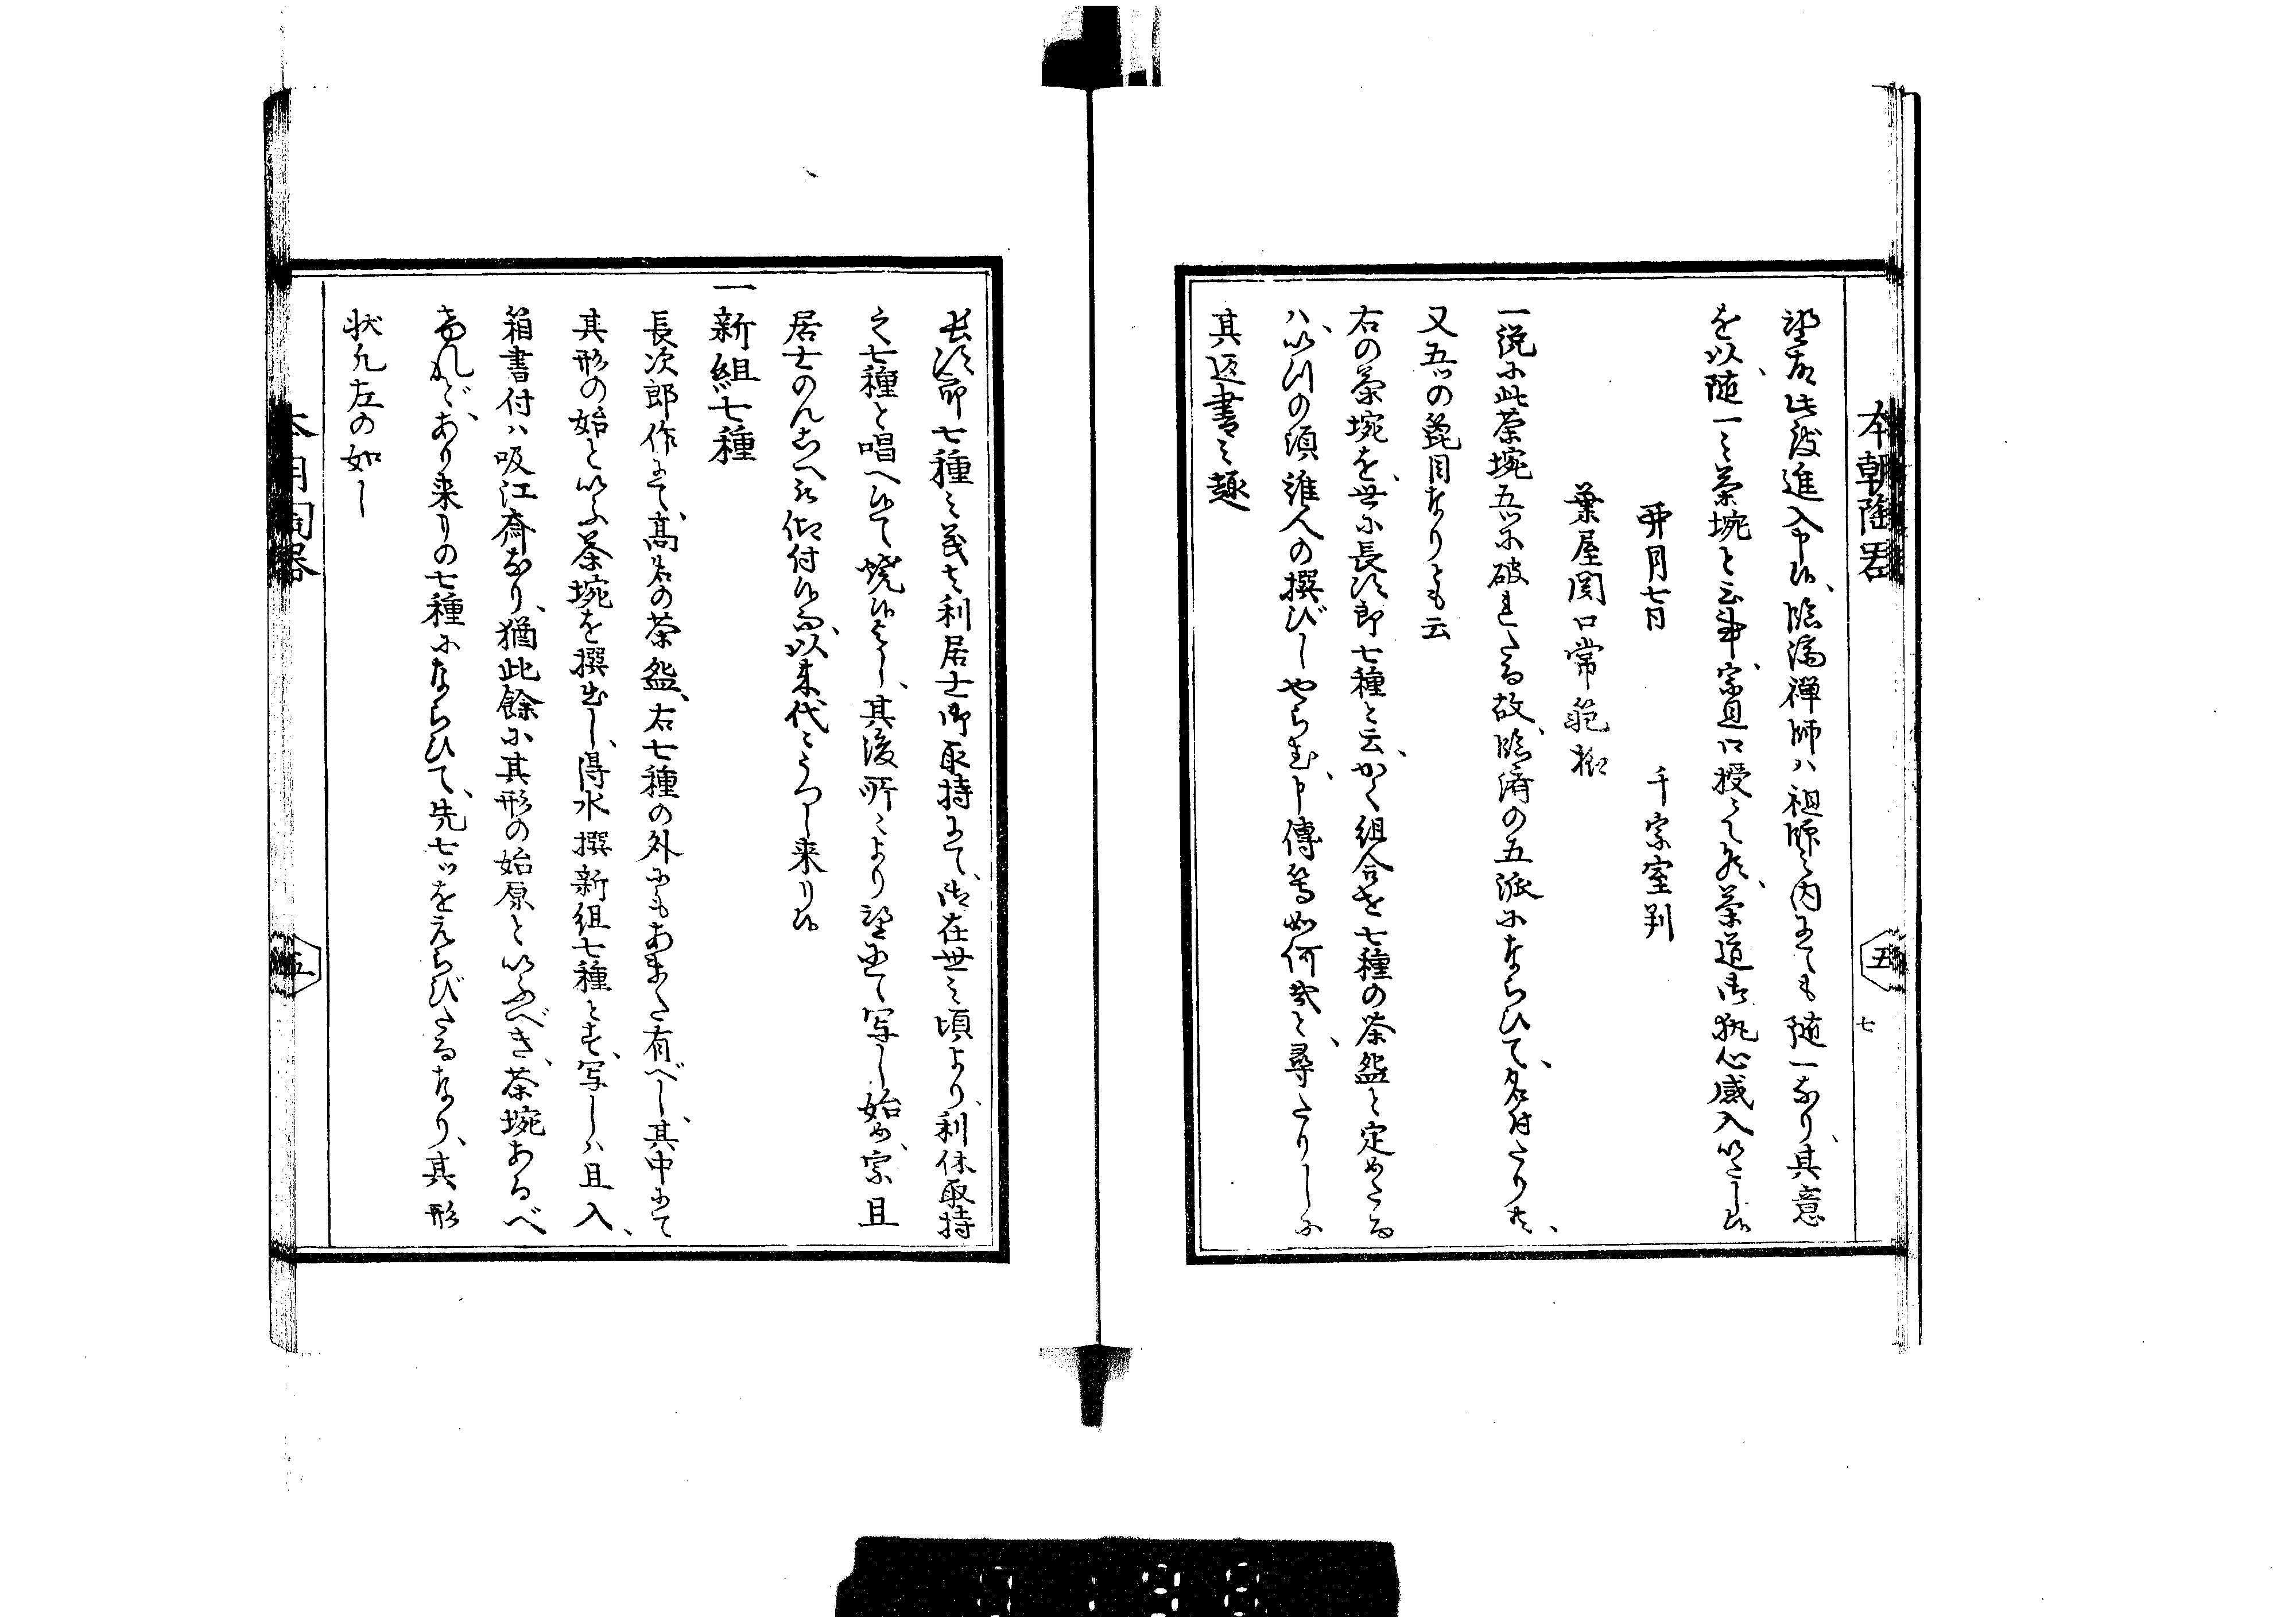 本朝陶器
五
七
望故此後進入申候、臨済禅師ハ祖師之内にても随一なり、其意
を以随一之茶埦と云事、宗旦口授ニて候、茶道御執心感入いたし候
七日
千宗室判
葉屋関口常範
一説に此茶埦五ツに破れたる故、臨済の五派にならひて、名付たりと、
又五ツの箆目なりとも云
右の茶埦を、世に長次郎七種と云、かく組合せを七種の茶盌と定めたる
ハ、いつの頃誰人の撰びしやらむ、申傳等如何哉と、尋たりしに
其返書之趣
長次郎七種之義は利居士御取持にて、御在世之頃より、利休取持
之七種と唱へ候て焼候よし、其後所々より望にて写し始め、宗旦
居士のんこへも仰付候而、以来代々うつし来り候
一新組七種
長次郎作にて、高名の茶盌、右七種の外にもあまた有べし、其中にて
其形の始といふ茶埦を撰出し、得水撰新組七種とす、写しハ且入、
箱書付ハ吸江斎なり、猶此餘に其形の始原といふべき、茶埦あるべ
けれど、あり来りの七種にならひて、先七ツをえらびたるなり、其形
状凡左の如し
本朝陶器
五